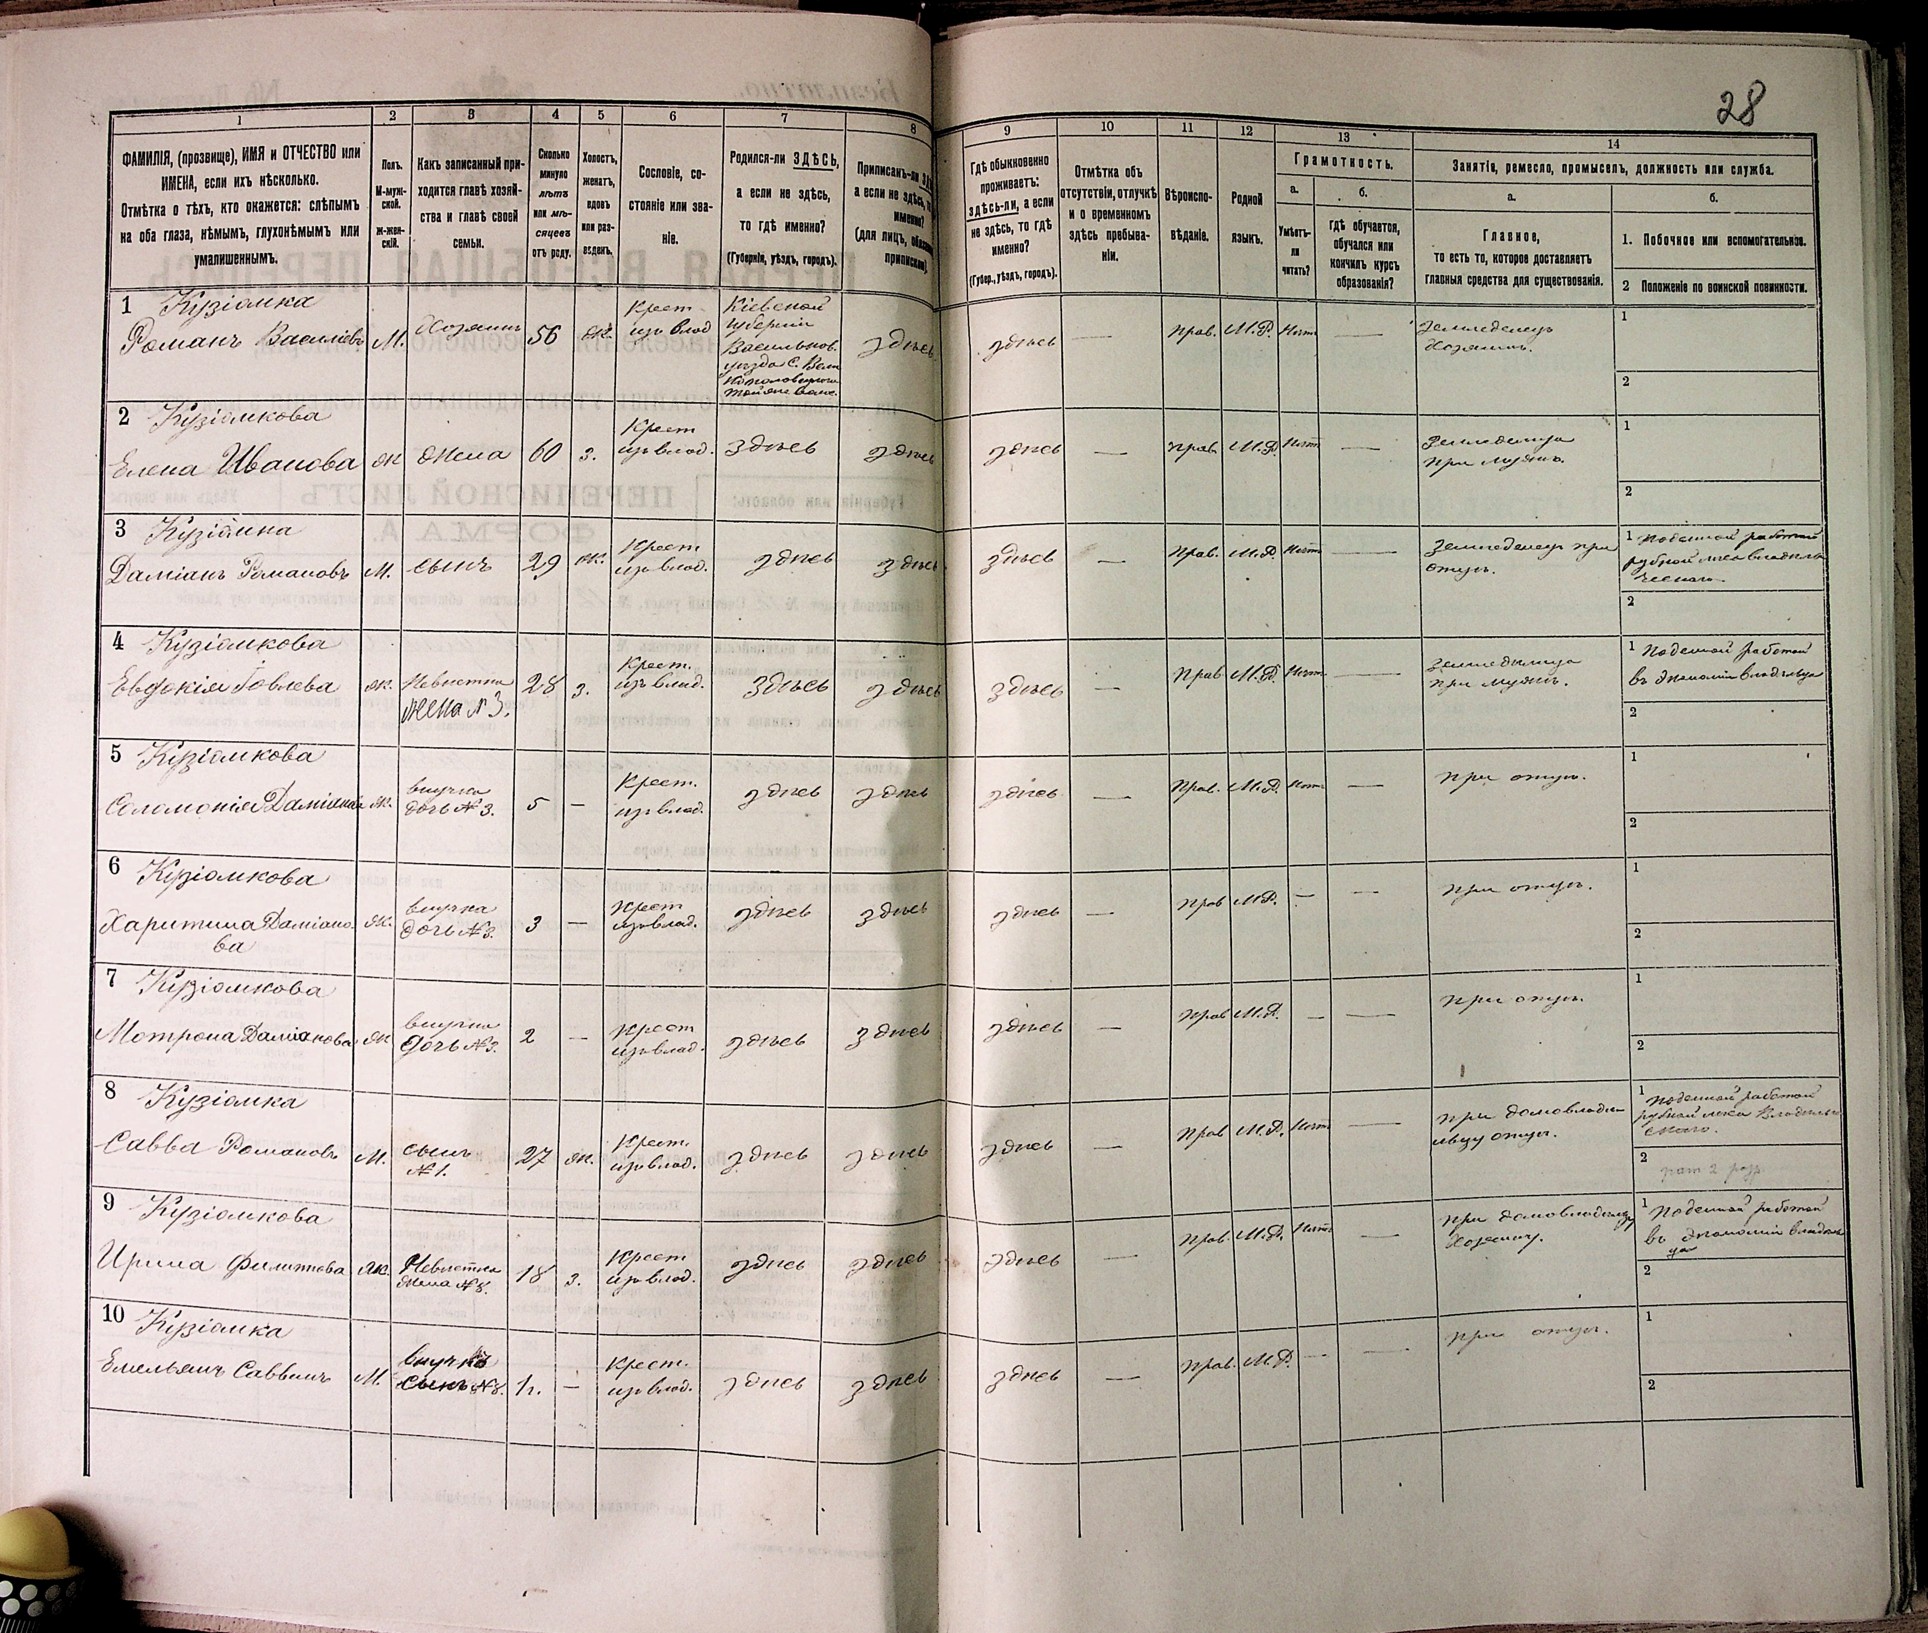 28
1
2
3
4
5
6
7
8
9
10
11
12
13
14
ФАМИЛІЯ, (прозвище), ИМЯ и ОТЧЕСТВО или
ИМЕНА, если ихъ нѣсколько.
Отмѣтка о тѣхъ, кто окажется: слѣпымъ
на оба глаза, нѣмымъ, глухонѣмымъ или
умалишеннымъ.
Полъ.
М-муж-
ской.
Ж-жен-
скій.
Какъ записанный при-
ходится главѣ хозяй-
ства и главѣ своей
семьи.
Сколько
минуло
лѣтъ
или мѣ-
сяцевъ
отъ роду.
Холостъ,
женатъ,
вдовъ
или раз-
веденъ.
Сословіе, со-
стояніе или зва-
ніе.
Родился-ли ЗДѢСЬ,
а если не здѣсь,
то гдѣ именно?
(Губернія, уѣздъ, городъ).
Приписанъ-ли
а если не здѣсь,
именно?
(для лицъ,
Гдѣ обыкновенно
проживаетъ:
здѣсь-ли, а если
не здѣсь, то гдѣ
именно?
(Губер., уѣздъ, городъ).
Отмѣтка объ
отсутствіи, отлучкѣ
и о временномъ
здѣсь пребыва-
ніи.
Вѣроиспо-
вѣданіе.
Родной
языкъ.
Грамотность.
а.
Умѣетъ-
ли
читать?
б.
гдѣ обучается,
обучался или
кончилъ курсъ
образованія?
Занятія, ремесло, промыселъ, должность или служба.
а.
Главное,
то есть то, которое доставляетъ
главныя средства для существованія.
б.
1. Побочное или вспомогательное.
2 Положеніе по воинской повинности.
1 Кузіомка
Романъ Василіевъ М. Хозяинъ 56 ж. Крест. изъ влад. Кіевской губерніи Васильков. уѣзда С. здѣсь здѣсь — Прав. М.Р. Нѣтъ — Земледелецъ Хозяинъ. 1
2
2 Кузіомкова
Елена Иванова Ж жена 60 з. Крест изъ влад. здѣсь здѣсь здѣсь — Прав. М.Р. Нѣтъ — Земледелица при мужѣ. 1
2
3 Кузіомка
Даміанъ Романовъ М. сынъ 29 ж. Крест изъ влад. здѣсь здѣсь здѣсь — Прав. М.Р. Нѣтъ — Земледелецъ при отцѣ. 1 Поденной работой рубкой леса
2
4 Кузіомкова
Евдокія Іовлева ж. Невѣстка жена №3. 28 з. Крест. изъ влад. здѣсь здѣсь здѣсь — Прав М.Р. Нѣтъ — Земледелица при мужѣ. 1 Поденной работой въ экономіи владѣльца
2
5 Кузіомкова
Соломонія ж. внучка дочь №3. 5 — Крест. изъ влад. здѣсь здѣсь здѣсь — Прав. М.Р. Нѣтъ — при отцѣ. 1
2
6 Кузіомкова
Харитина Даміано- ж. внучка дочь №3. 3 — Крест изъ влад. здѣсь здѣсь здѣсь — Прав М.Р. — — при отцѣ. 1
ва
2
7 Кузіомкова
Мотрона Даміанова ж внучка дочь №3. 2 — Крест изъ влад. здѣсь здѣсь здѣсь — Прав М.Р. — — при отцѣ. 1
2
8 Кузіомка
Савва Романовъ М. сынъ №1. 27 ж. Крест. изъ влад. здѣсь здѣсь здѣсь — Прав М.Р. Нѣтъ — при отцѣ. 1 Поденной работой рубкой леса
2 рат 2 разр
9 Кузіомкова
Ирина Филипова ж. Невѣстка жена №8. 18 з. Крест изъ влад. здѣсь здѣсь здѣсь — Прав М.Р. Нѣтъ — при домовладельцу Хозяину. 1 Поденной работой въ экономіи владельца
2
10 Кузіомка
Емельянъ Саввинъ М. внукъ сынъ №8. 1 г. — Крест. изъ влад. здѣсь здѣсь здѣсь — Прав. М.Р. — — при отцѣ. 1
2